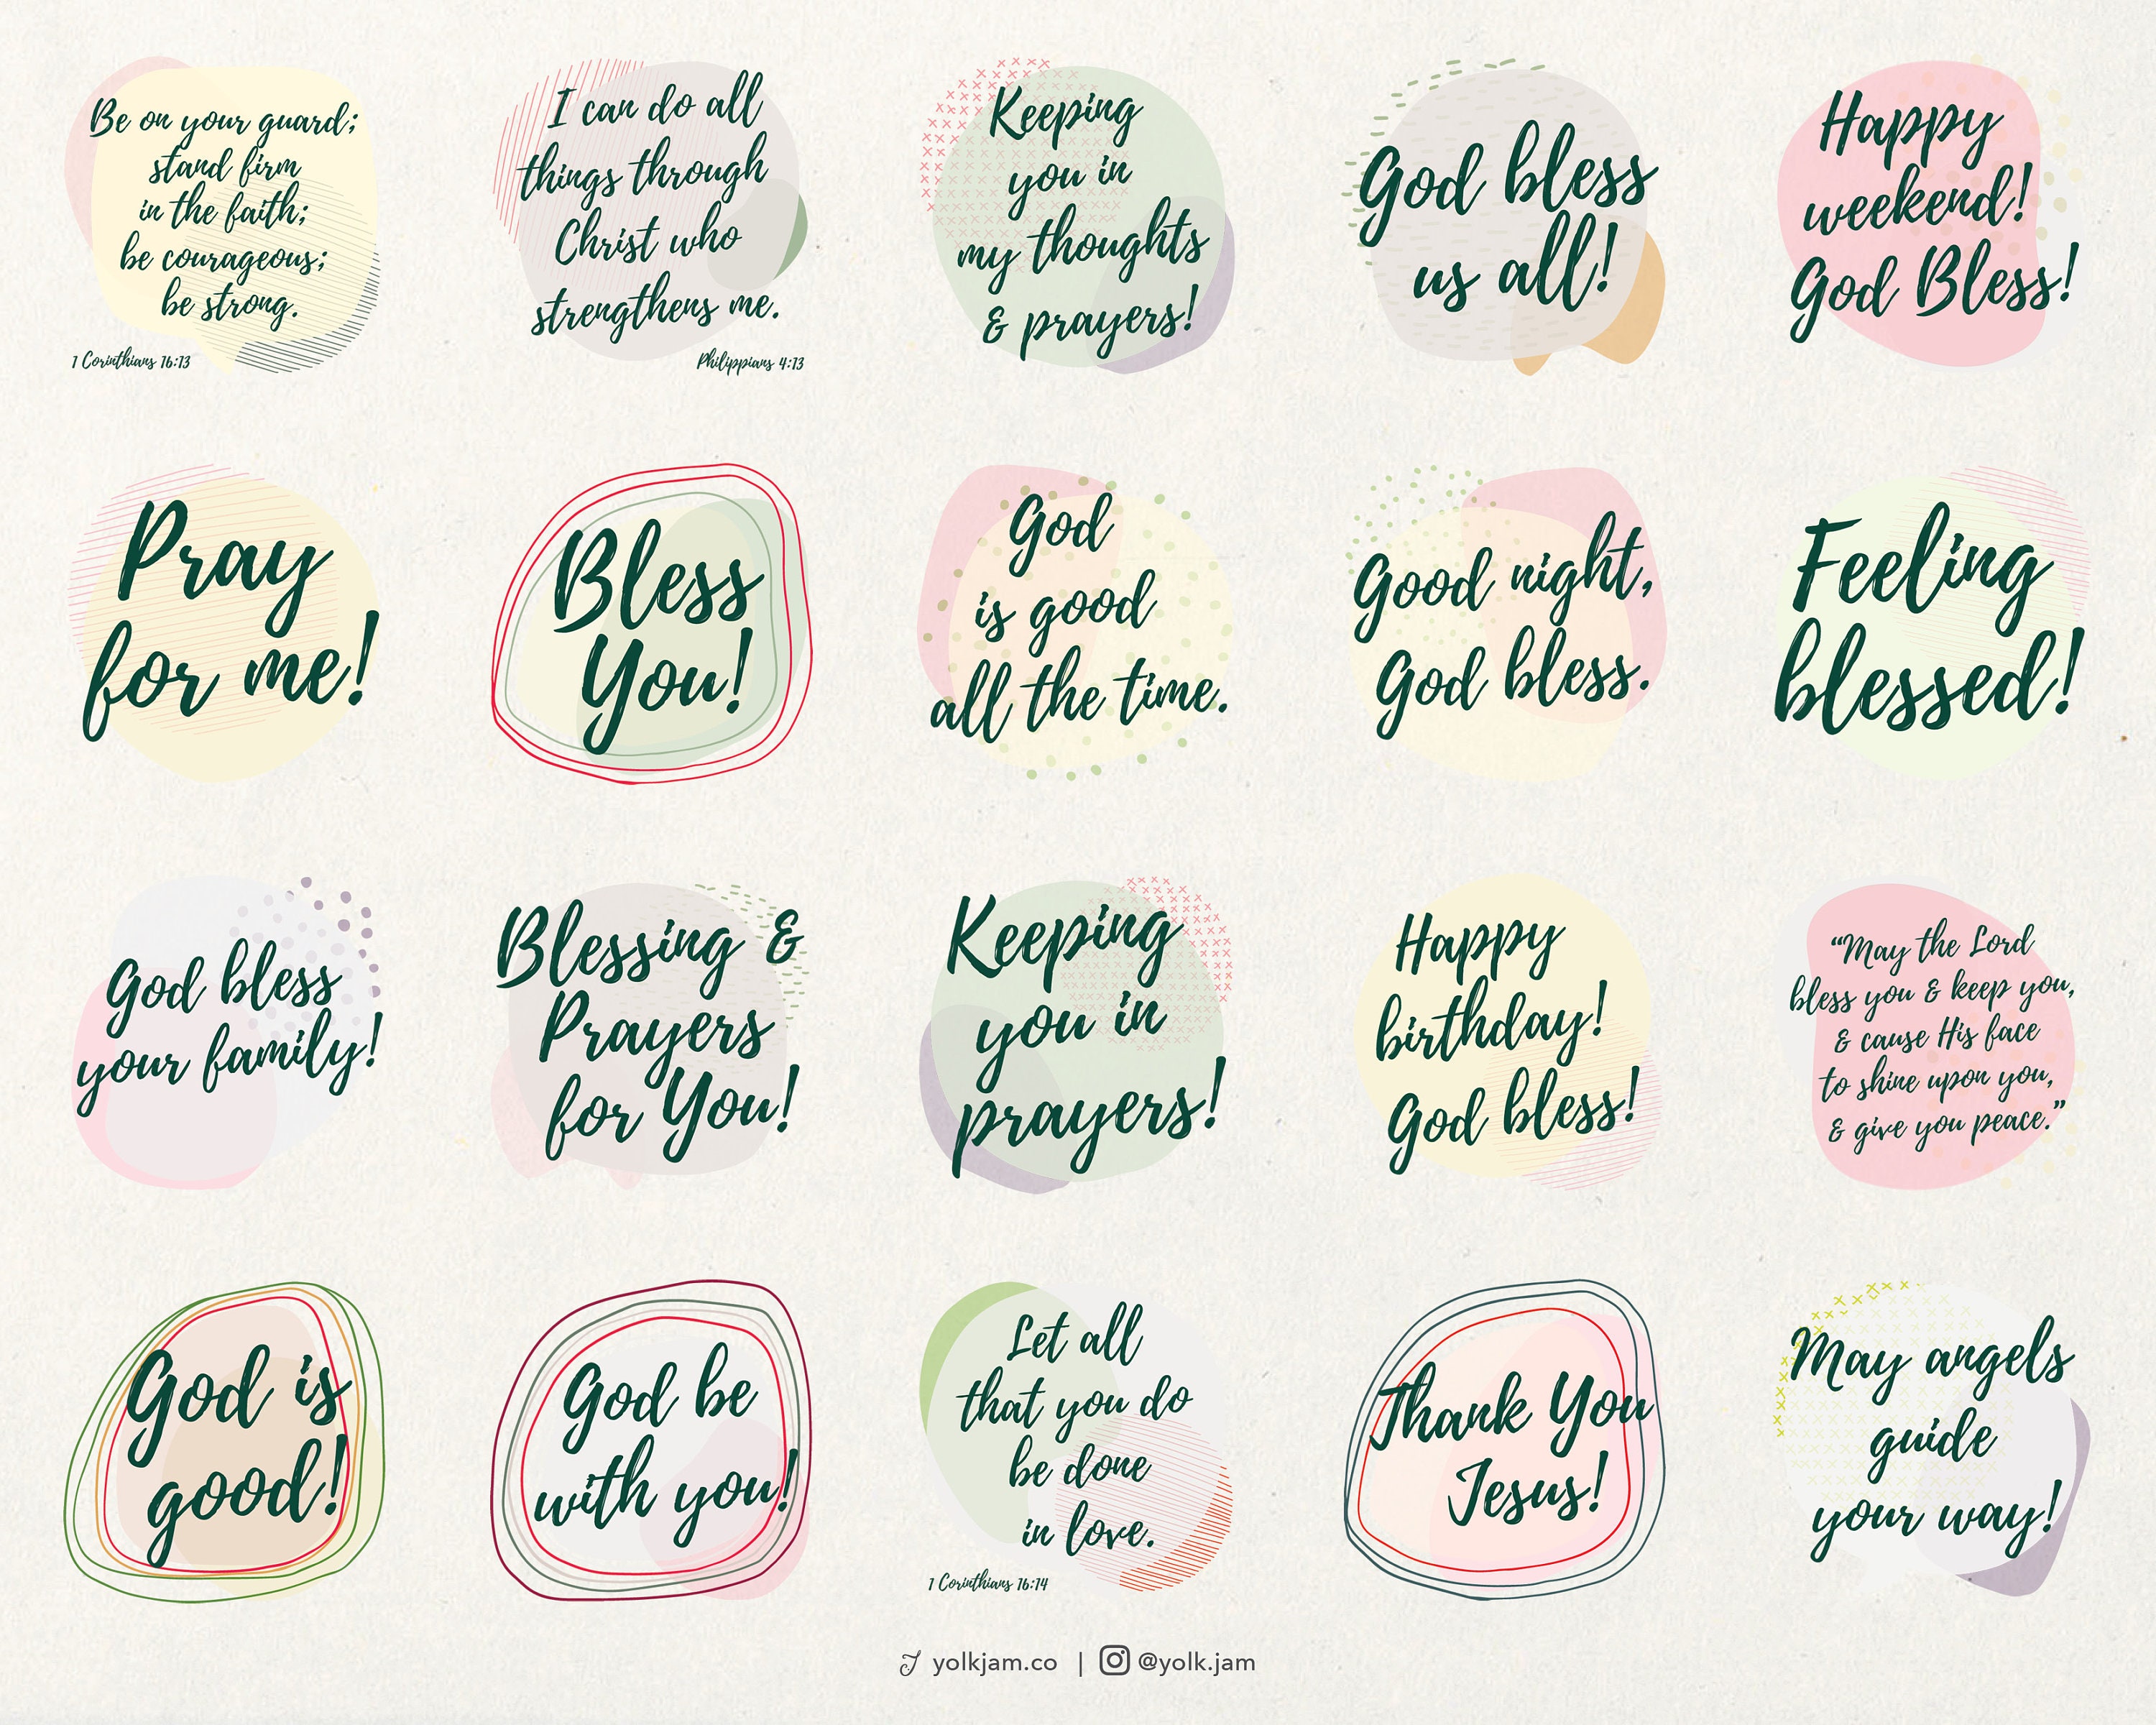 Be on your guard;
stand firm
in the faith;
be courageous;
be strong.
1 Corinthians 16:13
I can do all
things through
Christ who
strengthens me.
Philippians 4:13
Keeping
you in
my thoughts
& prayers!
God bless
us all!
Happy
weekend!
God Bless!
Pray
for me!
Bless
You!
God
is good
all the time.
Good night,
God bless.
Feeling
blessed!
God bless
your family!
Blessing &
Prayers
for You!
Keeping
you in
prayers!
Happy
birthday!
God bless!
“May the Lord
bless you & keep you,
& cause His face
to shine upon you,
& give you peace.”
God is
good!
God be
with you!
Let all
that you do
be done
in love.
1 Corinthians 16:14
Thank You
Jesus!
May angels
guide
your way!
yolkjam.co | @yolk.jam